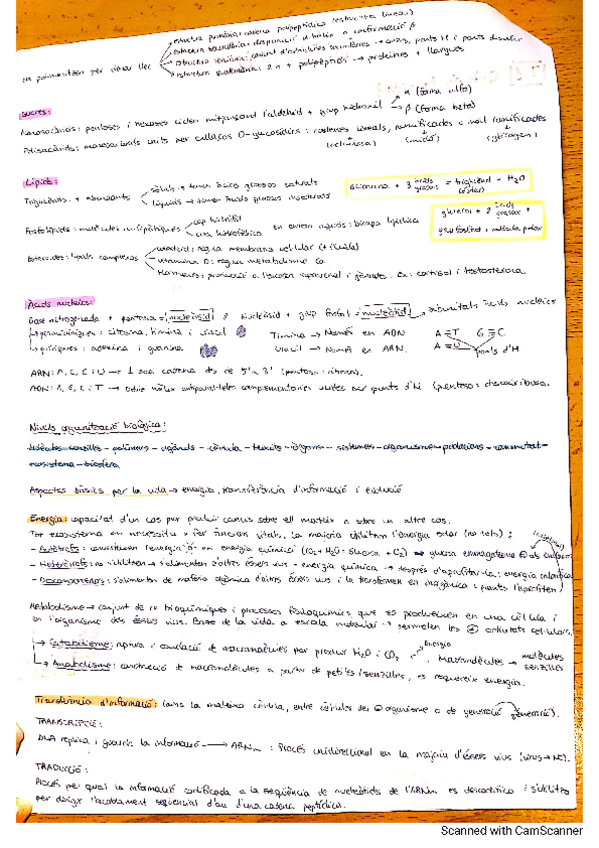 estructura primària: cadena polipeptídica (estructura lineal)
estructura secundària: disposició d'hèlix o conformació β
es polimeritzen per donar lloc
estructura quaternària: 2 o + polipèptids → proteïnes + llargues
Sucres:
Monosacàrids: pentoses i hexoses ciclen mitjançant l'aldehid + grup hidroxil
α (forma alfa)
β (forma beta)
Polisacàrids: monosacàrids units per enllaços O-glucosídics: cadenes lineals, ramificades o molt ramificades
(cel·lulosa) (midó) (glicogen)
Lípids:
Triglicèrids: + abundants
sòlids: + tenen àcids grassos saturats
líquids → tenen àcids grassos insaturats
Glicerina + 3 àcids grassos = triglicèrid + H₂O
(èster)
Fosfolípids: molècules amfipàtiques
cap hidròfil
cua hidrofòbica
en medi aquós: bicapa lipídica
glicerol + 2 àcids grassos +
grup fosfat + molècula polar
Esteroides: lípids complexos
colesterol: regula membrana cel·lular (+ fluïda)
vitamina D: regula metabolisme Ca
Hormones: producció a l'escorça suprarenal i gònades. Ex: cortisol i testosterona.
Àcids nucleics:
Base nitrogenada + pentosa = nucleòsid // Nucleòsid + grup fosfat = nucleòtid → subunitats àcids nucleics
→ pirimidíniques: citosina, timina i uracil
→ púriques: adenina i guanina
Timina → Només en ADN
Uracil → Només en ARN.
A=T G≡C
A=U
ponts d'H
ARN: A, G, C i U → 1 sola cadena des de 5' a 3' (pentosa: ribosa).
ADN: A, G, C i T → Doble hèlix antiparal·leles complementàries unides per ponts d'H (pentosa: desoxiribosa).
Nivells organització biològica:
Molècules senzilles - polímers - orgànuls - cèl·lula - teixits - òrgans - sistemes - organisme - poblacions - comunitat -
ecosistema - biosfera
Aspectes bàsics per la vida → energia, transferència d'informació i evolució
Energia: capacitat d'un cos per produir canvis sobre ell mateix o sobre un altre cos.
Tot ecosistema en necessita x fer funcions vitals. La majoria utilitzen l'energia solar (no tots):
- Autòtrofs: converteixen l'energia en energia química (CO₂ + H₂O = Glucosa + O₂) → glucosa emmagatzema
- Heteròtrofs: no s'utilitzen → s'alimenten d'altres éssers vius = energia química → després d'aprofitar-la: energia calorífica
- Descomponedors: s'alimenten de matèria orgànica d'altres éssers vius i la transformen en inorgànica: plantes l'aprofiten
Metabolisme → conjunt de rx bioquímiques i processos fisicoquímics que es produeixen en una cèl·lula i
en l'organisme dels éssers vius. Base de la vida a escala molecular → permeten les activitats cel·lulars.
→ Catabolisme: ruptura i oxidació de macromolècules per produir H₂O i CO₂
Energia
Macromolècules → molècules
senzilles
→ Anabolisme: construcció de macromolècules a partir de petites i senzilles, es requereix energia.
Transferència d'informació: (dins la mateixa cèl·lula, entre cèl·lules del organisme o de generació generació).
TRANSCRIPCIÓ:
DNA replica i guarda la informació → ARNm: Procés unidireccional en la majoria d'éssers vius (virus → NO).
TRADUCCIÓ:
Procés per qual la informació codificada a la seqüència de nucleòtids de l'ARNm es descodifica i s'utilitza
per dirigir l'acoblament seqüencial d'aa d'una cadena peptídica.
Scanned with CamScanner